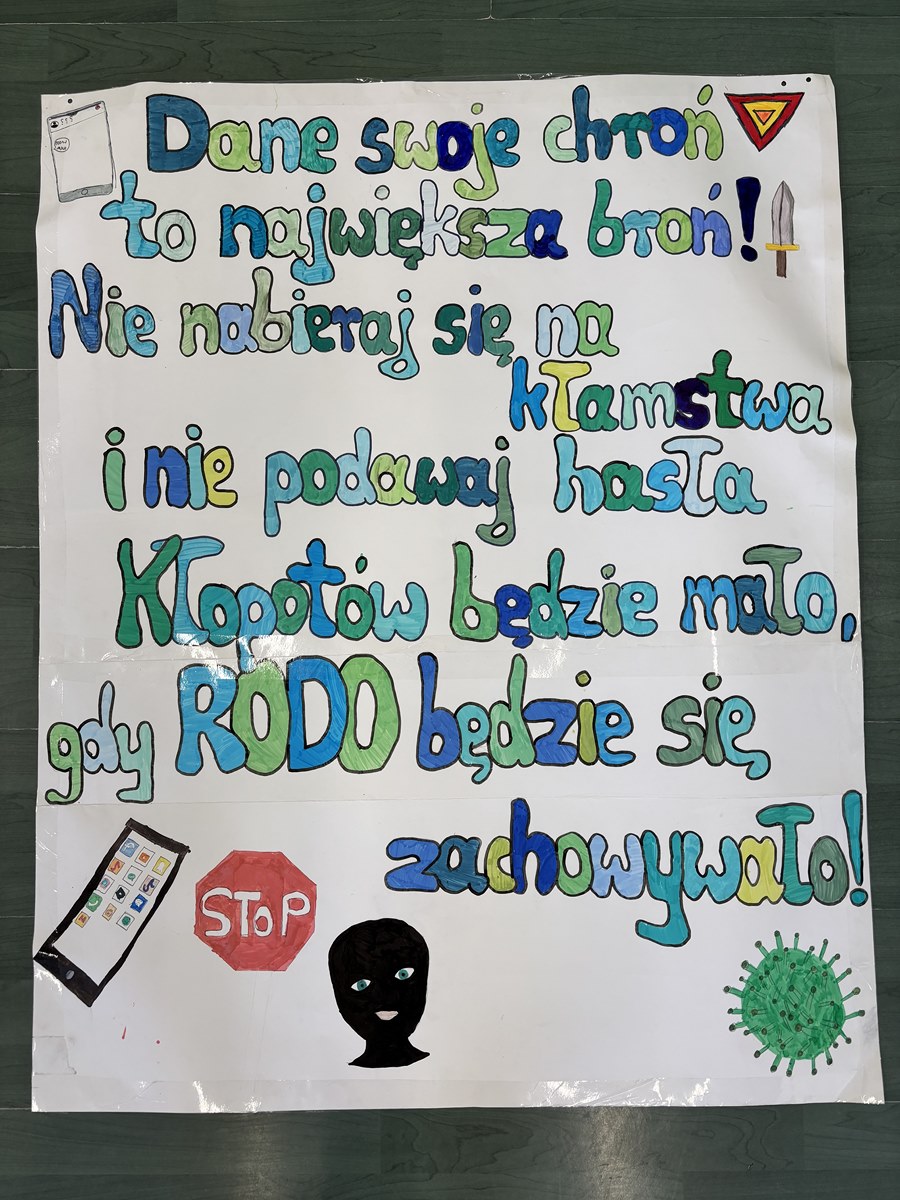 Dane swoje chroń
to największa broń!
Nie nabieraj się na
kłamstwa
i nie podawaj hasła
Kłopotów będzie mało,
gdy RODO będzie się
zachowywało!
STOP